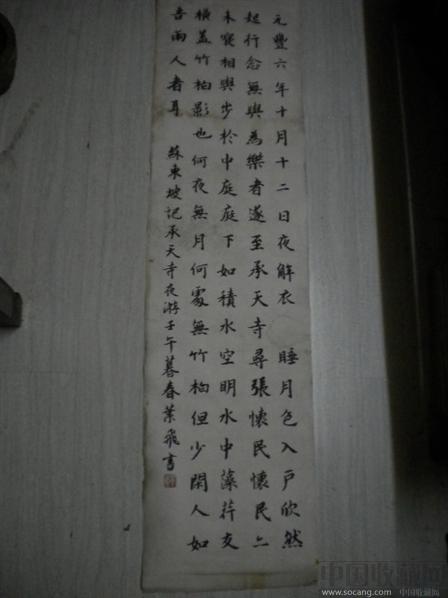 元豐六年十月十二日夜解衣 睡月色入戶欣然
起行念無與為樂者遂至承天寺尋張懷民懷民亦
未寢相與步於中庭庭下如積水空明水中藻荇交
橫蓋竹柏影也何夜無月何處無竹柏但少閑人如
吾兩人者耳 蘇東坡記承天寺夜游壬午暮春葉飛書
中国收藏网
www.socang.com 中国收藏网